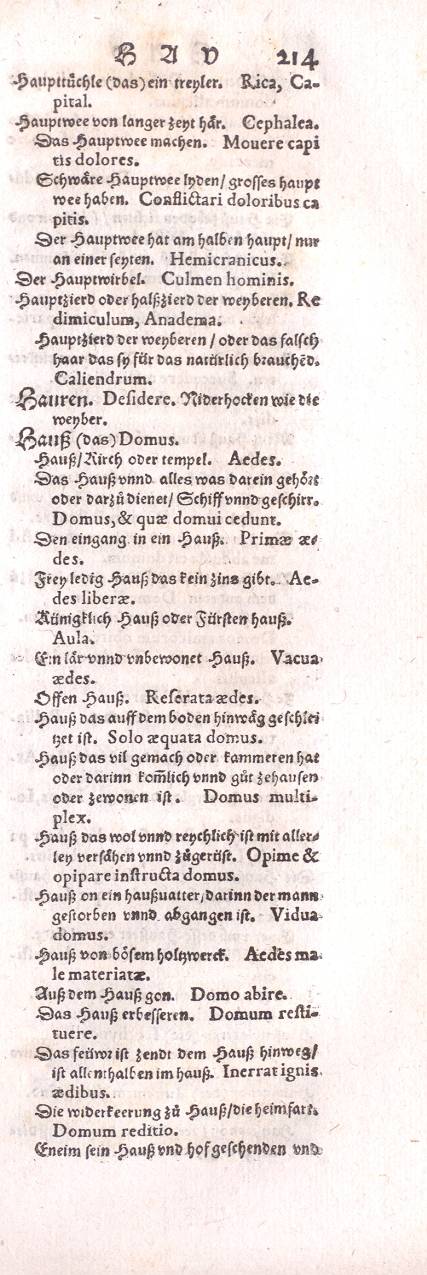 H A V 214
Haupttüchle (das) ein treyler. Rica, Ca-
pital.
Hauptwee von langer zeyt här. Cephalea.
Das Hauptwee machen. Mouere capi
tis dolores.
Schwäre Hauptwee lyden/ grosses haupt
wee haben. Conflictari doloribus ca
pitis.
Der Hauptwee hat am halben haupt/ nur
an einer seyten. Hemicranicus.
Der Hauptwirbel. Culmen hominis.
Hauptzierd oder halßzierd der weyberen. Re
dimiculum, Anadema.
Hauptzierd der weyberen / oder das falsch
haar das sy für das natürlich brauchēd.
Caliendrum.
Hauren. Desidere. Niderhocken wie die
weyber.
Hauß (das) Domus.
Hauß/ Kirch oder tempel. Aedes.
Das Hauß vnnd alles was darein gehört
oder darzů dienet/ Schiff vnnd geschirr.
Domus, & quæ domui cedunt.
Den eingang in ein Hauß. Primæ æ-
des.
Frey ledig Hauß das kein zins gibt. Ae-
des liberæ.
Künigklich Hauß oder Fürsten hauß.
Aula.
Ein lär vnnd vnbewonet Hauß. Vacua
ædes.
Offen Hauß. Reserata ædes.
Hauß das auff dem boden hinwäg geschlei
tzet ist. Solo æquata domus.
Hauß das vil gemach oder kammeren hat
oder darinn kom̃lich vnnd gůt zehausen
oder zewonen ist. Domus multi-
plex.
Hauß das wol vnnd reychlich ist mit aller-
ley versähen vnnd zůgerüst. Opime &
opipare instructa domus.
Hauß on ein haußuatter/ darinn der mann
gestorben vnnd abgangen ist. Vidua
domus.
Hauß von bösem holtzwerck. Aedes ma-
le materiatæ.
Auß dem Hauß gon. Domo abire.
Das Hauß erbesseren. Domum resti-
tuere.
Das feüwr ist zendt dem Hauß hinweg/
ist allenthalben im hauß. Inerrat ignis
ædibus.
Die widerkeerung zů Hauß/die heimfart.
Domum reditio.
Eneim sein Hauß vnd hof geschenden vnd